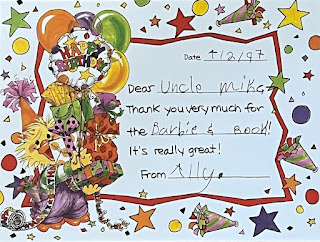 HAPPY
BIRTHDAY
Date 4/2/97
Dear Uncle Mike,
Thank you very much for
the Barbie & Book!
It's really great!
From Ally.